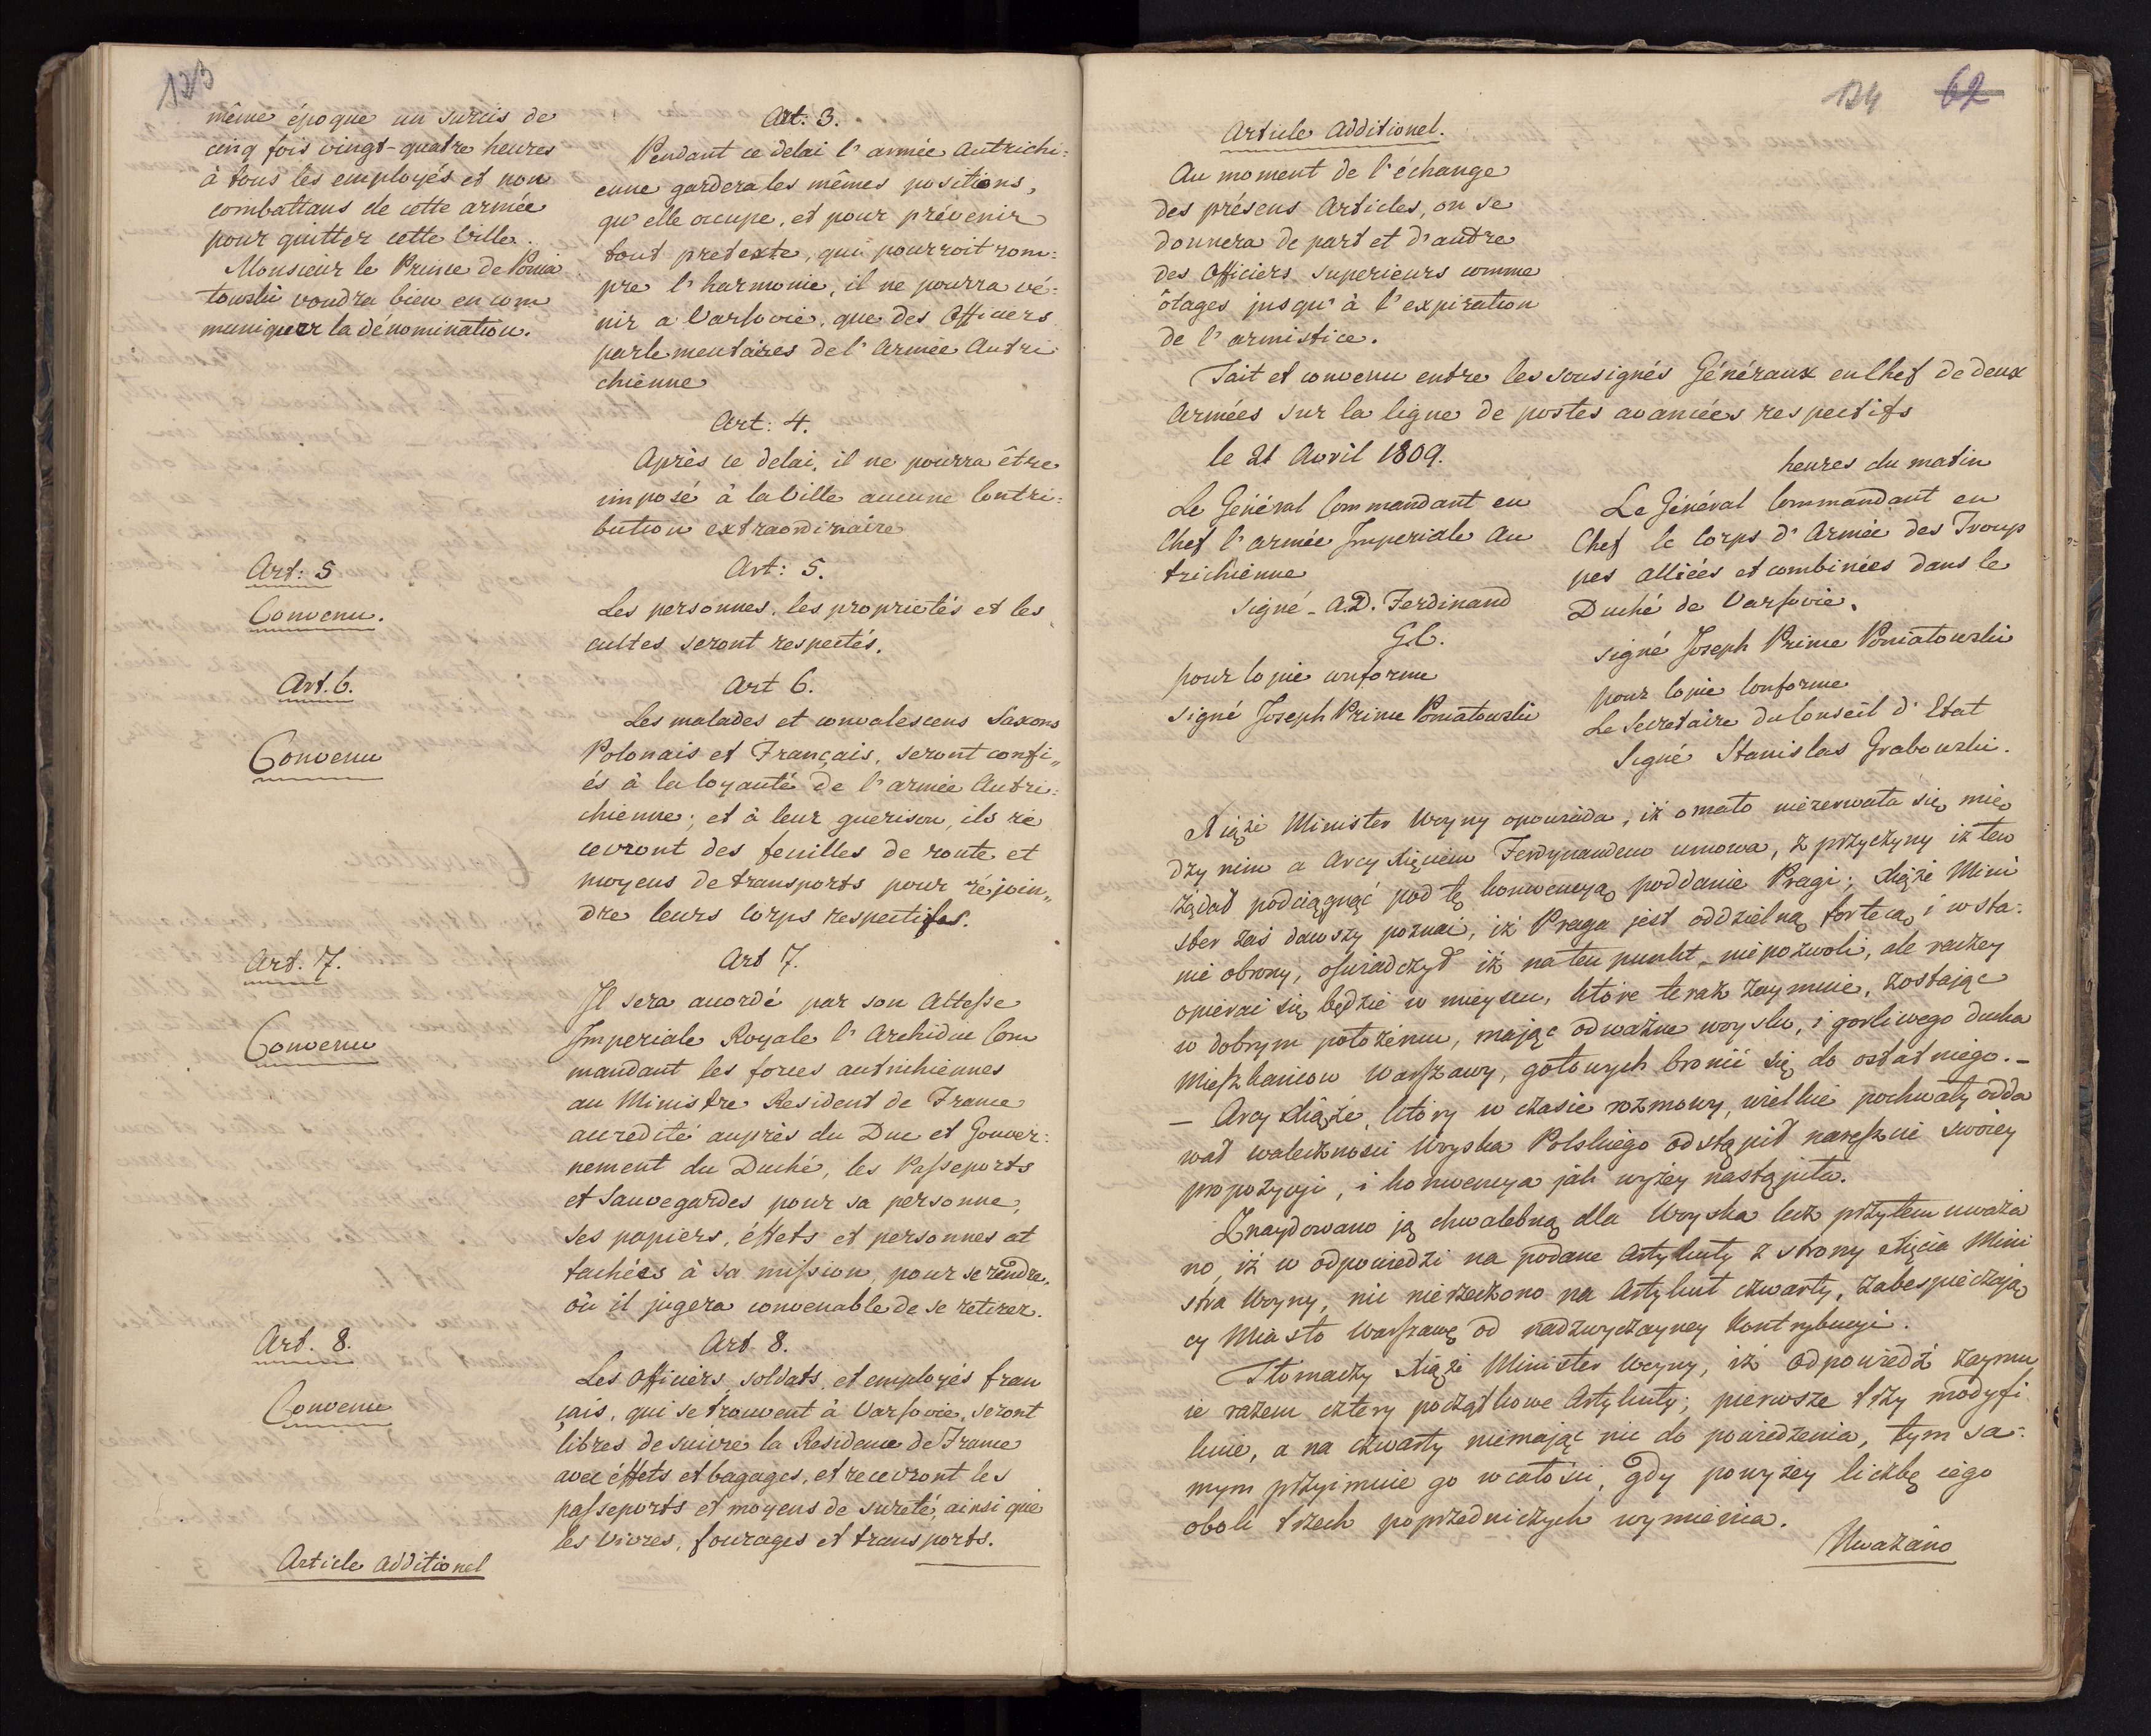 123
même époque un sursis de
cinq fois vingt-quatre heures
à tous les employés et non
combattans de cette armée
pour quitter cette Ville.
Monsieur le Prince de Ponia
towski voudra bien en com
muniquer la dénomination.
Art: 5
Convenu.
Art. 6.
Convenu
Art. 7.
Convenu
Art. 8.
Convenu
Article additionel
Art: 3.
Pendant ce delai l'armée Autrichi:
enne gardera les mêmes positions,
qu'elle occupe, et pour prévenir
tout pretexte, qui pourroit rom:
pre l'harmonie, il ne pourra vé:
nir a Varsovie, que des Officiers
parlementaires de l'Armée Autri
chienne
Art: 4.
Après ce delai, il ne pourra être
imposé à la Ville aucune Contri:
bution extraordinaire
Art: 5.
Les personnes, les proprietés et les
cultes seront respectés.
Art 6.
Les malades et convalescens Saxons
Polonais et Français, seront confi„
és à la loyauté de l'armée Autri:
chienne; et à leur guerison, ils ré
cevront des feuilles de route et
moyens de transports pour réjoin„
dre leurs Corps respectifs.
Art 7.
Il sera accordé par son Altesse
Imperiale Royale l'Archiduc Com
mandant les forces autrichiennes
au Ministre Resident de France
accredité auprès du Duc et Gouver:
nement du Duché, les Passeports
et Sauvegardes pour sa personne,
ses papiers, éffets et personnes at
tachées à sa mission, pour se rendre,
où il jugera convenable de se retirer.
Art 8.
Les Officiers, soldats, et employés fran
çais, qui se trouvent à Varsovie, seront
libres de suivre la Residence de France
avec éffets et bagages, et recevront les
passeports et moyens de sureté, ainsi que
les vivres, fourages et transports.
124 62
Article Additionel.
Au moment de l'échange
des présens Articles, on se
donnera de part et d'autre
des Officiers superieurs comme
ôtages jusqu'à l'expiration
de l'armistice.
Fait et convenu entre les sousignés Généraux en Chef de deux
Armées sur la ligne de postes avancées respectifs
le 21 Avril 1809.
heures du matin
Le Général Commandant en
Chef l'armée Imperiale Au
trichienne
signé - A.D. Ferdinand
G.C.
pour Copie conforme
signé Joseph Prince Poniatowski
Le Général Commandant en
Chef le Corps d'Armée des Troup
pes Alliées et combinées dans le
Duché de Varsovie.
signé Joseph Prince Poniatowski
pour Copie Conforme
Le Secretaire du Conseil d'Etat
Signé Stanislas Grabowski.
Xiąże Minister Woyny opowiada, iż omało niezerwała się mię
dzy nim a Arcy Xięciem Ferdynandem umowa, z przyczyny iż ten
żądał podciągnąć pod tę konwencyą poddanie Pragi; Xiąże Mini
ster zaś dawszy poznać, iż Praga jest oddzielną fortecą i w sta:
nie obrony, oświadczył iż na ten punkt niepozwoli, ale raczey
opierać się będzie w mieyscu, które teraz zaymuie, zostając
w dobrym położeniu, mając odważne woysko, i gorliwego ducha
Mieszkańcow Warszawy, gotowych bronić się do ostatniego.-
- Arcy Xiąże, który w czasie rozmowy, wielkie pochwały odda
wał waleczności Woyska Polskiego odstąpił nareszcie swoiey
propozycyi, i konwencya jak wyżey nastąpiła.
Znaydowano ją chwalebną dla Woyska lecz przytem uważa
no, iż w odpowiedzi na podane Artykuły z strony Xięcia Mini
stra Woyny, nic nierzeczono na Artykuł czwarty, zabespieczają
cy Miasto Warszawę od nadzwyczayney Kontrybucyi.
Tłomaczy Xiąże Minister Woyny, iż odpowiedź zaymu
ie razem cztery początkowe Artykuły; pierwsze trzy modyfi
kuie, a na czwarty niemając nic do powiedzenia, tym sa:
mym przyimuie go w całości, gdy powyżey liczbę iego
obok trzech poprzedniczych wymienia.
Uważano